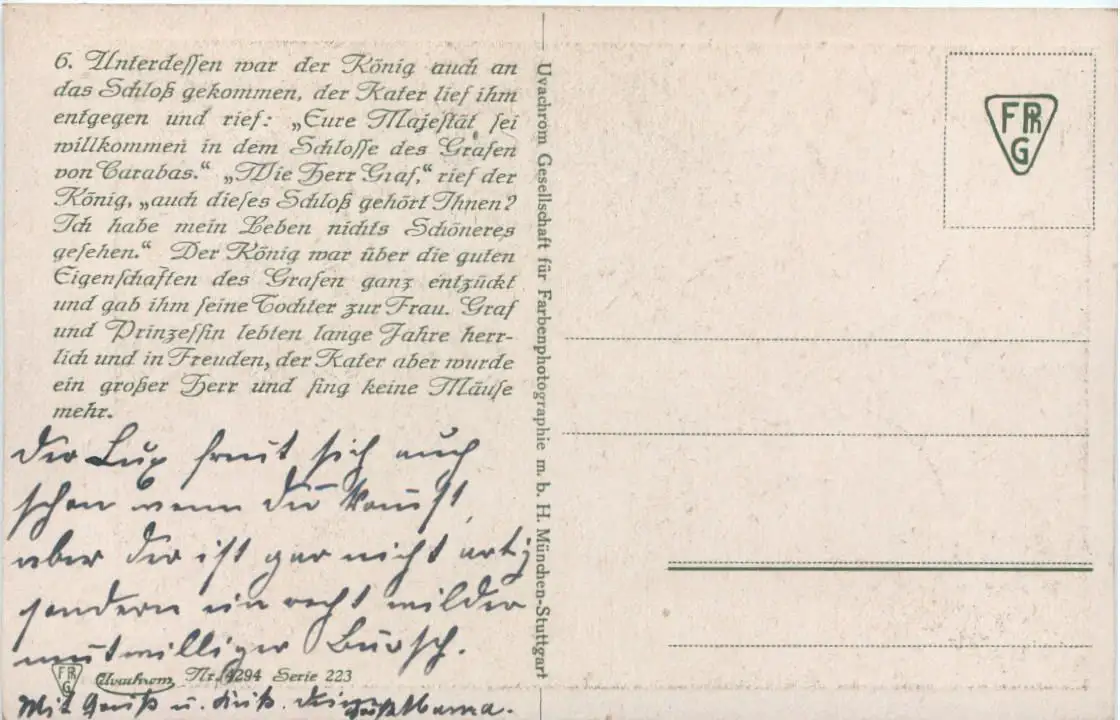 6. Unterdessen war der König auch an
das Schloß gekommen, der Kater lief ihm
entgegen und rief: „Eure Majestät sei
willkommen in dem Schlosse des Grafen
von Carabas.“ „Wie Herr Graf,“ rief der
König, „auch dieses Schloß gehört Ihnen?
Ich habe mein Leben nichts Schöneres
gesehen.“ Der König war über die guten
Eigenschaften des Grafen ganz entzückt
und gab ihm seine Tochter zur Frau. Graf
und Prinzessin lebten lange Jahre herr-
lich und in Freuden, der Kater aber wurde
ein großer Herr und fing keine Mäuse
mehr.
Der Lux freut sich auch
schon wenn du kommst,
aber der ist gar nicht artig
sondern ein recht wilder
mutwilliger Bursch.
FPhG Uvachrom Nr. 4294 Serie 223
Mit Gruß u. Kuß. Deine
Uvachrom Gesellschaft für Farbenphotographie m. b. H. München-Stuttgart
FPhG